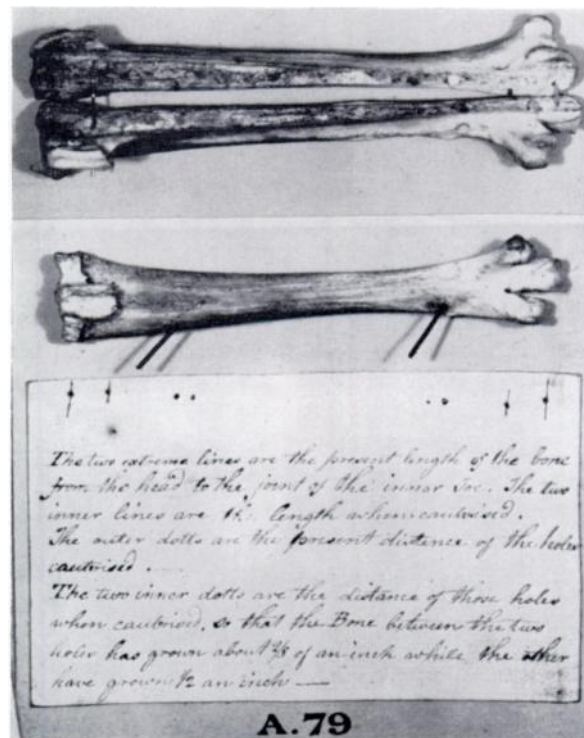 The two extreme lines are the present length of the bone
from the head to the joint of the inner Toe. The two
inner lines are the length when cauterised.
The outer dotts are the present distance of the holes
cauterised.
The two inner dotts are the distance of those holes
when cauterised, so that the Bone between the two
holes has grown about of an inch while the other
have grown 1/2 an inch —
A.79